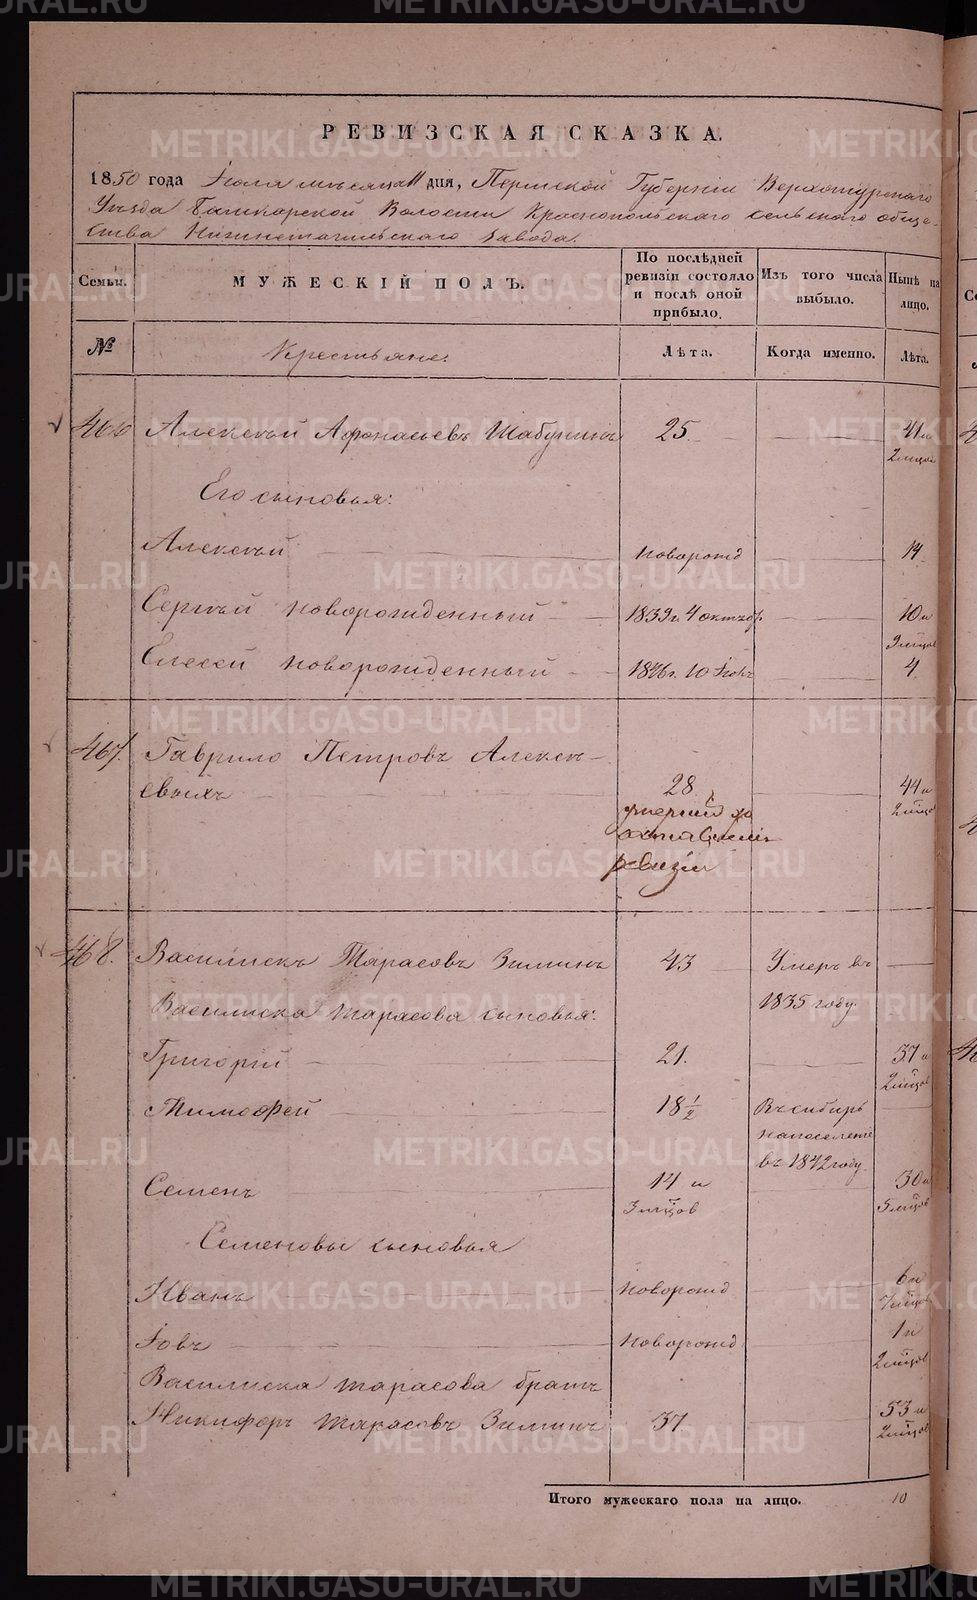 РЕВИЗСКАЯ СКАЗКА.
1850 года Іюля мѣсяца 11 дня, Пермской Губерніи Верхотурского
Уѣзда Башкарской Волости Краснопольского сельского обще-
ства Нижнетагильскаго Завода.
Семьи. МУЖЕСКІЙ ПОЛЪ. По послѣдней ревизіи состояло и послѣ оной прибыло. Изъ того числа выбыло. Нынѣ на лицо.
№ Крестьяне. Лѣта. Когда именно. Лѣта.
466 Алексѣй Афонасьевъ Шабунинъ 25. 41 и
2 мѣсц
Его сыновья:
Алексѣй новорожд 14
Сергѣй новорожденный 1839 г. 4 октяб. 10 и
9 мѣсцов
Елесей новорожденный 1846 г. 10 Іюнь 4.
467. Гаврило Петровъ Алексѣ-
евыхъ 28. 44 и
2 мѣсцов
ревизіи
468. Василискъ Тарасовъ Зиминъ 43 Умеръ въ
1835 году.
Василиска Тарасова сыновья:
Григорій 21. 37 и
2 мѣсцов
Тимофей 18 1/2 Въ сибирь
на поселеніе
въ 1842 году.
Семенъ 14 и 30 и
3 мѣсцов 5 мѣсцов
Семеновы сыновья
Иванъ новорожд 6 и
7 мѣсцов
Іовъ новорожд 1 и
2 мѣсцов
Василиска Тарасова братъ
Никифоръ Тарасовъ Зиминъ 37 53 и
2 мѣсцов
Итого мужескаго пола на лицо. 10
METRIKI.GASO-URAL.RU